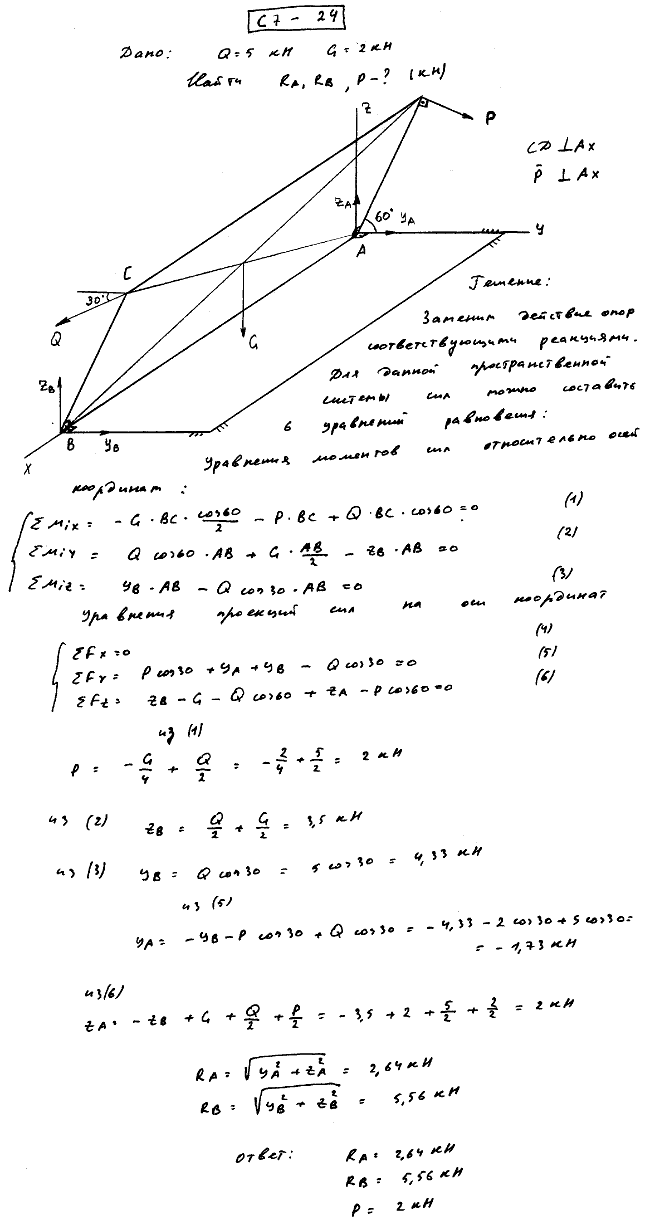 С7 - 24
Дано: Q=5 кН G=2кН
Найти RA, RB, P-? (кН)
Z
P
CD ⊥Ax
P̄ ⊥Ax
ZA
60°
YA
Y
A
C
30°
Q
G
Решение:
Заменим действие опор
соответствующими реакциями.
Для данной пространственной
системы сил можно составить
6 уравнений равновесия:
ZB
B
YB
X
Уравнения моментов сил относительно осей
координат:
ΣMix = -G·BC·cos60/2 - P·BC + Q·BC·cos60=0 (1)
ΣMiY = Q cos60·AB + G·AB/2 - ZB·AB =0 (2)
ΣMiZ = YB·AB - Q cos30·AB =0 (3)
Уравнения проекций сил на оси координат
ΣFx=0 (4)
ΣFY= P cos30 + YA + YB - Q cos30 =0 (5)
ΣFZ= ZB - G - Q cos60 + ZA - P cos60=0 (6)
из (1)
P = -G/4 + Q/2 = -2/4 + 5/2 = 2 кН
из (2) ZB = Q/2 + G/2 = 3,5 кН
из (3) YB = Q cos30 = 5 cos30 = 4,33 кН
из (5)
YA= -YB-P cos30 + Q cos30 = -4,33 - 2 cos30 + 5 cos30=
= -1,73 кН
из(6)
ZA= -ZB + G + Q/2 + P/2 = -3,5 + 2 + 5/2 + 2/2 = 2 кН
RA = √(YA² + ZA²) = 2,64 кН
RB = √(YB² + ZB²) = 5,56 кН
Ответ: RA = 2,64 кН
RB = 5,56 кН
P = 2 кН